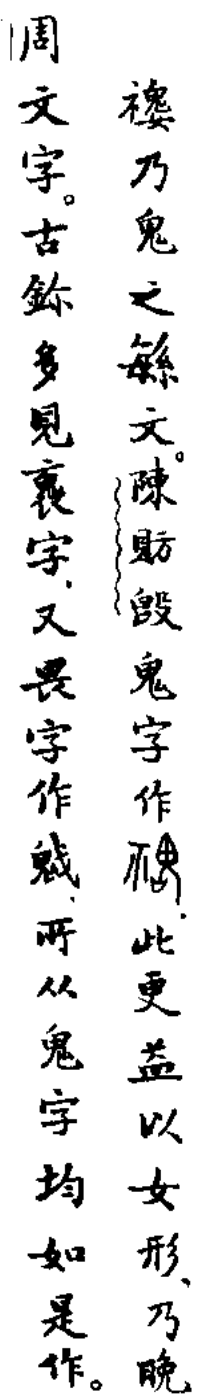 乃鬼之緐文。陳𣪘鬼字作,此更益以女形、乃晚
周文字。古鉨多見褢字,又畏字作、所从鬼字均如是作。